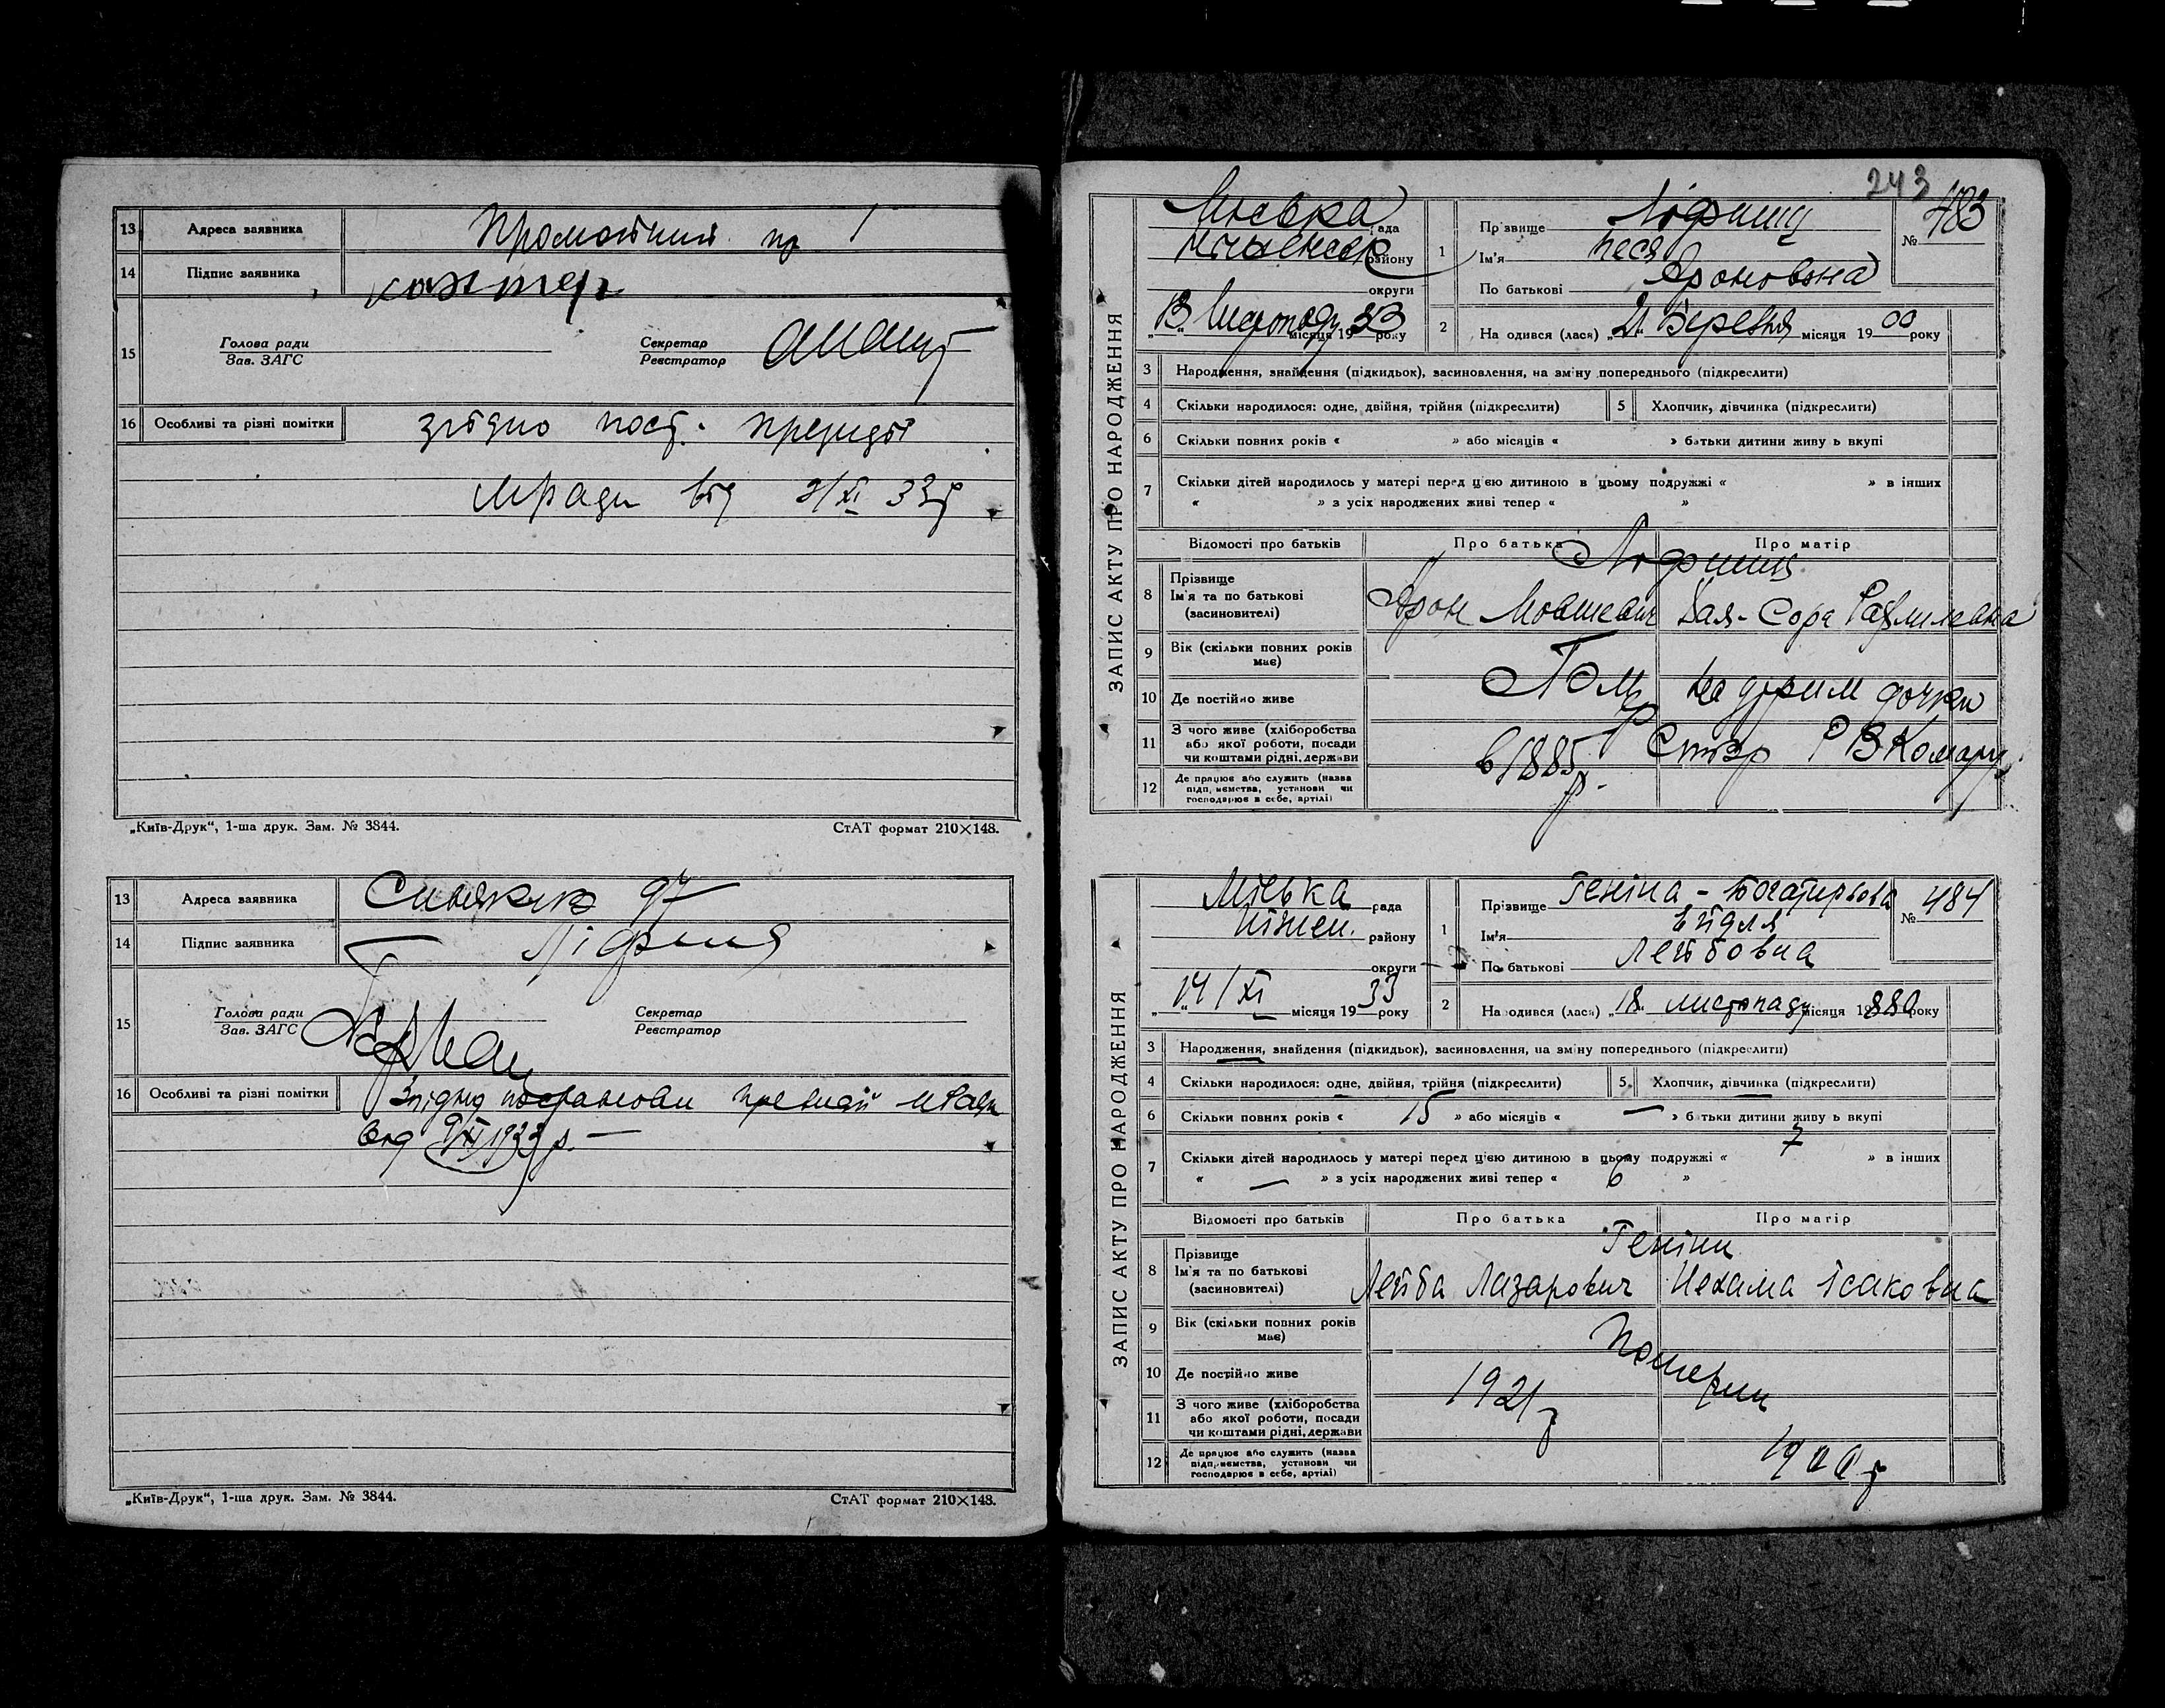 13 Адреса заявника Промостний пр 1
14 Підпис заявника
15 Голова ради Зав. ЗАГС Секретар Реєстратор
16 Особливі та різні помітки згідно пост. презид
мради від 2/XI 33р
„Київ-Друк“, 1-ша друк. Зам. № 3844. СтАТ формат 210×148.
13 Адреса заявника 97
14 Підпис заявника Ліфшиц
15 Голова ради Зав. ЗАГС Секретар Реєстратор
16 Особливі та різні помітки Згідно постанови президії мРади
від 9/XI 1933 р.
„Київ-Друк“, 1-ша друк. Зам. № 3844. СтАТ формат 210×148.
243
ЗАПИС АКТУ ПРО НАРОДЖЕННЯ
Міська рада
району
округи
„13“ Листопаду місяця 1933 року
1 Прізвище Ліфшиц № 483
Ім'я Песя
По батькові Ароновна
2 Народився (лася) „21“ Березня місяця 1900 року
3 Народження, знайдення (підкидьок), засиновлення, на зміну попереднього (підкреслити)
4 Скільки народилося: одне, двійня, трійня (підкреслити) 5 Хлопчик, дівчинка (підкреслити)
6 Скільки повних років « » або місяців « » батьки дитини живуть вкупі
7 Скільки дітей народилось у матері перед цією дитиною в цьому подружжі « » в інших
« » з усіх народжених живі тепер « »
Відомості про батьків Про батька Про матір
Ліфшиц
8 Прізвище Ім'я та по батькові (засновителі) Арон Мовшевич Хая-Сора
9 Вік (скільки повних років має)
10 Де постійно живе Помр на утрим дочки
11 З чого живе (хліборобства або якої роботи, посади чи коштами рідні, держави в 1885р.
12 Де працює або служить (назва підприємства, установи чи господарює в себе, артілі)
ЗАПИС АКТУ ПРО НАРОДЖЕННЯ
Міська рада
Ніжен. району
округи
„14/XI“ місяця 1933 року
1 Прізвище Геніна-Богатирьова № 484
Ім'я Ейдля
По батькові Лейбовна
2 Народився (лася) „18“ листопаду місяця 1880 року
3 Народження, знайдення (підкидьок), засиновлення, на зміну попереднього (підкреслити)
4 Скільки народилося: одне, двійня, трійня (підкреслити) 5. Хлопчик, дівчинка (підкреслити)
6 Скільки повних років « 15 » або місяців « — » батьки дитини живуть вкупі
7 Скільки дітей народилось у матері перед цією дитиною в цьому подружжі « 7 » в інших
« — » з усіх народжених живі тепер « 6 »
Відомості про батьків Про батька Про матір
Геніни
8 Прізвище Ім'я та по батькові (засиновителі) Лейба Лазарович Нехама Ісаковна
9 Вік (скільки повних років має)
Померли
10 Де постійно живе
1921 р
11 З чого живе (хліборобства або якої роботи, посади чи коштами рідні, держави
12 Де працює або служить (назва підприємства, установи чи господарює в себе, артілі) 1900 р